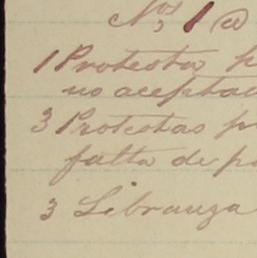 Nos, 1 @
1 Protesta p
no aceptad
3 Protestas p
falta de p
3 Libranza